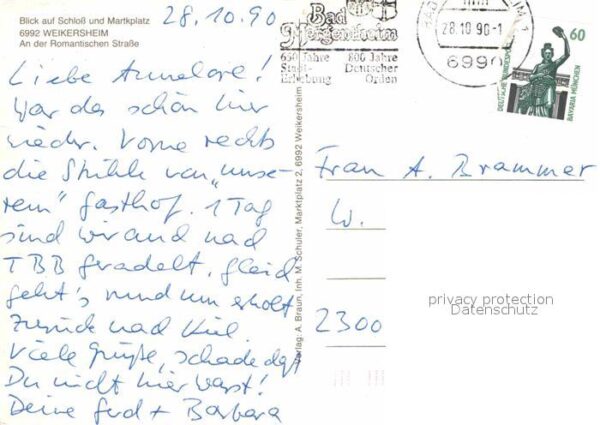 Blick auf Schloß und Martkplatz
6992 WEIKERSHEIM
An der Romantischen Straße
28.10.90
Liebe Annelore!
War das schön hier
wieder. Vorne rechts
die Stühle von „unse-
rem" Gasthof. 1 Tag
sind wir auch nach
TBB geradelt. Gleich
geht's rund um erholt
zurück nach Kiel.
Viele Grüße, schade daß
Du nicht hier warst!
Deine Gerd + Barbara
Verlag: A. Braun, Inh. M. Schuler, Marktplatz 2, 6992 Weikersheim
Bad
Mergentheim
650 Jahre 800 Jahre
Stadt- Deutscher
Erhebung Orden
28.10.90-1
6990
60
DEUTSCHE BUNDESPOST
BAVARIA MÜNCHEN
Frau A. Brammer
W.
2300
privacy protection
Datenschutz